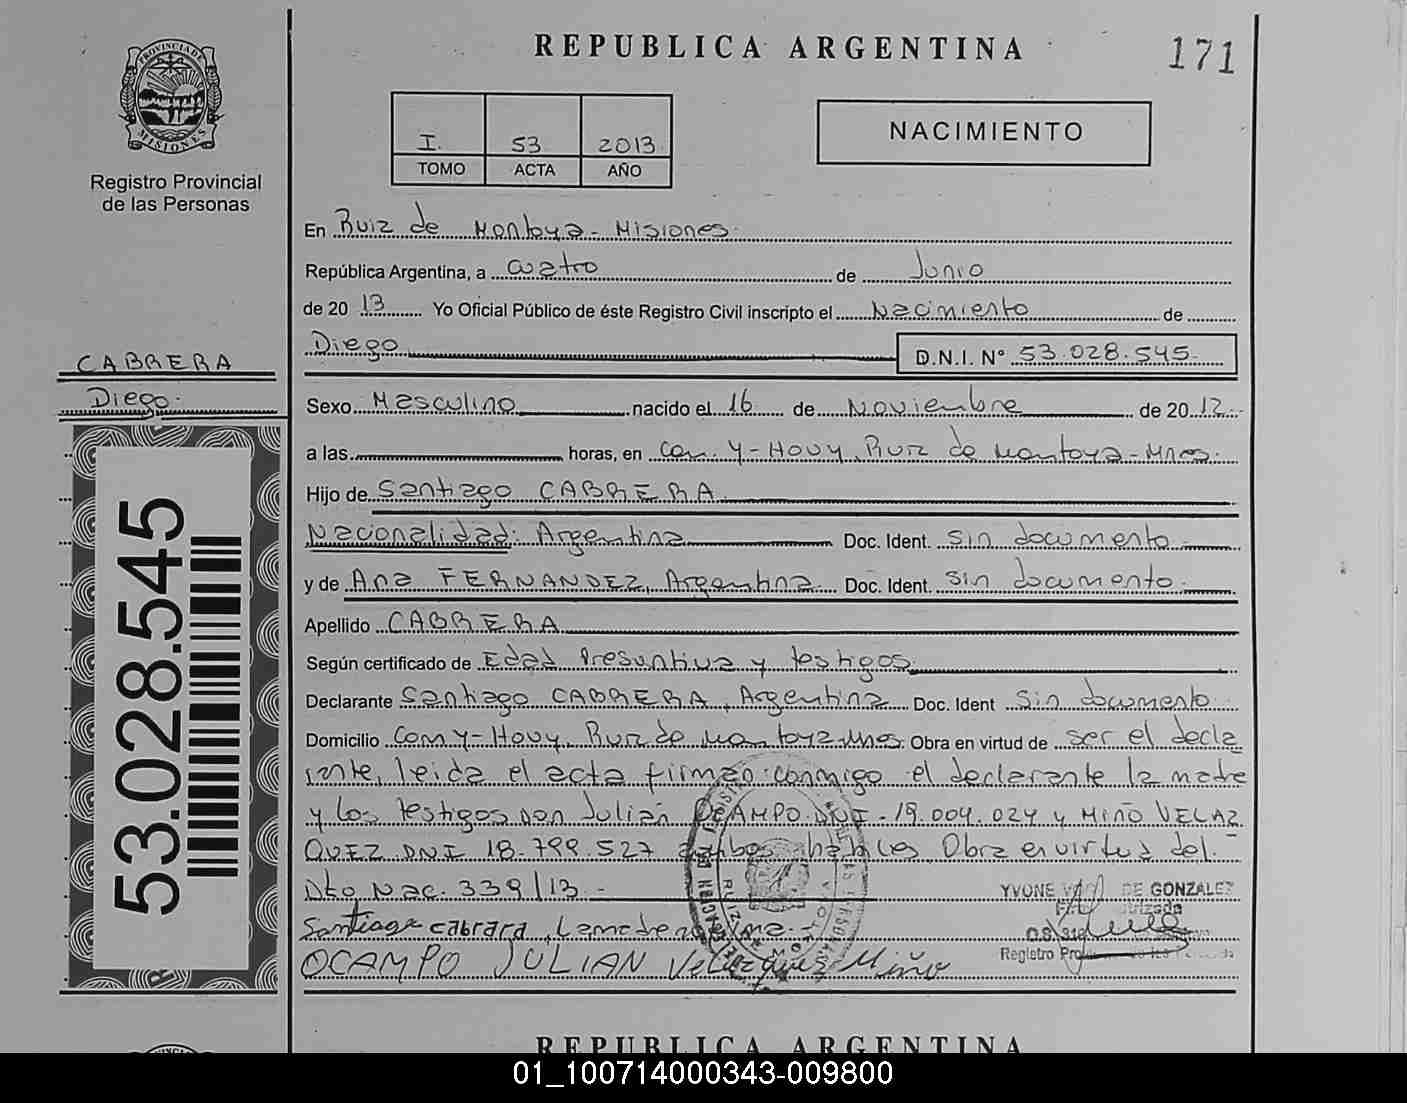 REPUBLICA ARGENTINA
171
PROVINCIA DE
MISIONES
Registro Provincial
de las Personas
I. 53 2013
TOMO ACTA AÑO
NACIMIENTO
En Ruiz de Montoya - Misiones.
República Argentina, a cuatro de Junio
de 20 13 Yo Oficial Público de éste Registro Civil inscripto el Nacimiento de
Diego D.N.I. N° 53.028.545.
CABRERA
Diego.
Sexo Masculino nacido el 16 de Noviembre de 2012.
a las horas, en Com. Y-Hovy, Ruiz de Montoya - Mnes.
Hijo de Santiago CABRERA
Nacionalidad: Argentina Doc. Ident. Sin documento
y de Ana FERNANDEZ, Argentina. Doc. Ident. Sin documento.
Apellido CABRERA
Según certificado de Edad Presuntiva y testigos
Declarante Santiago CABRERA, Argentina Doc. Ident Sin documento.
Domicilio Com Y-Hovy, Ruiz de Montoya Mnes. Obra en virtud de ser el decla
rante, leida el acta firman conmigo el declarante la madre
y los testigos son Julián OCAMPO DNI - 19.004.024 y MIÑO VELAZ
QUEZ DNI 18.799.527 ambos habiles, Obra en virtud del
Dto Nac. 339/13. -
Santiago cabrara, La madre no firma.-
OCAMPO JULIAN Velazquez Miño
YVONE DE GONZALEZ
Registro
53.028.545
REPUBLICA ARGENTINA
01_100714000343-009800